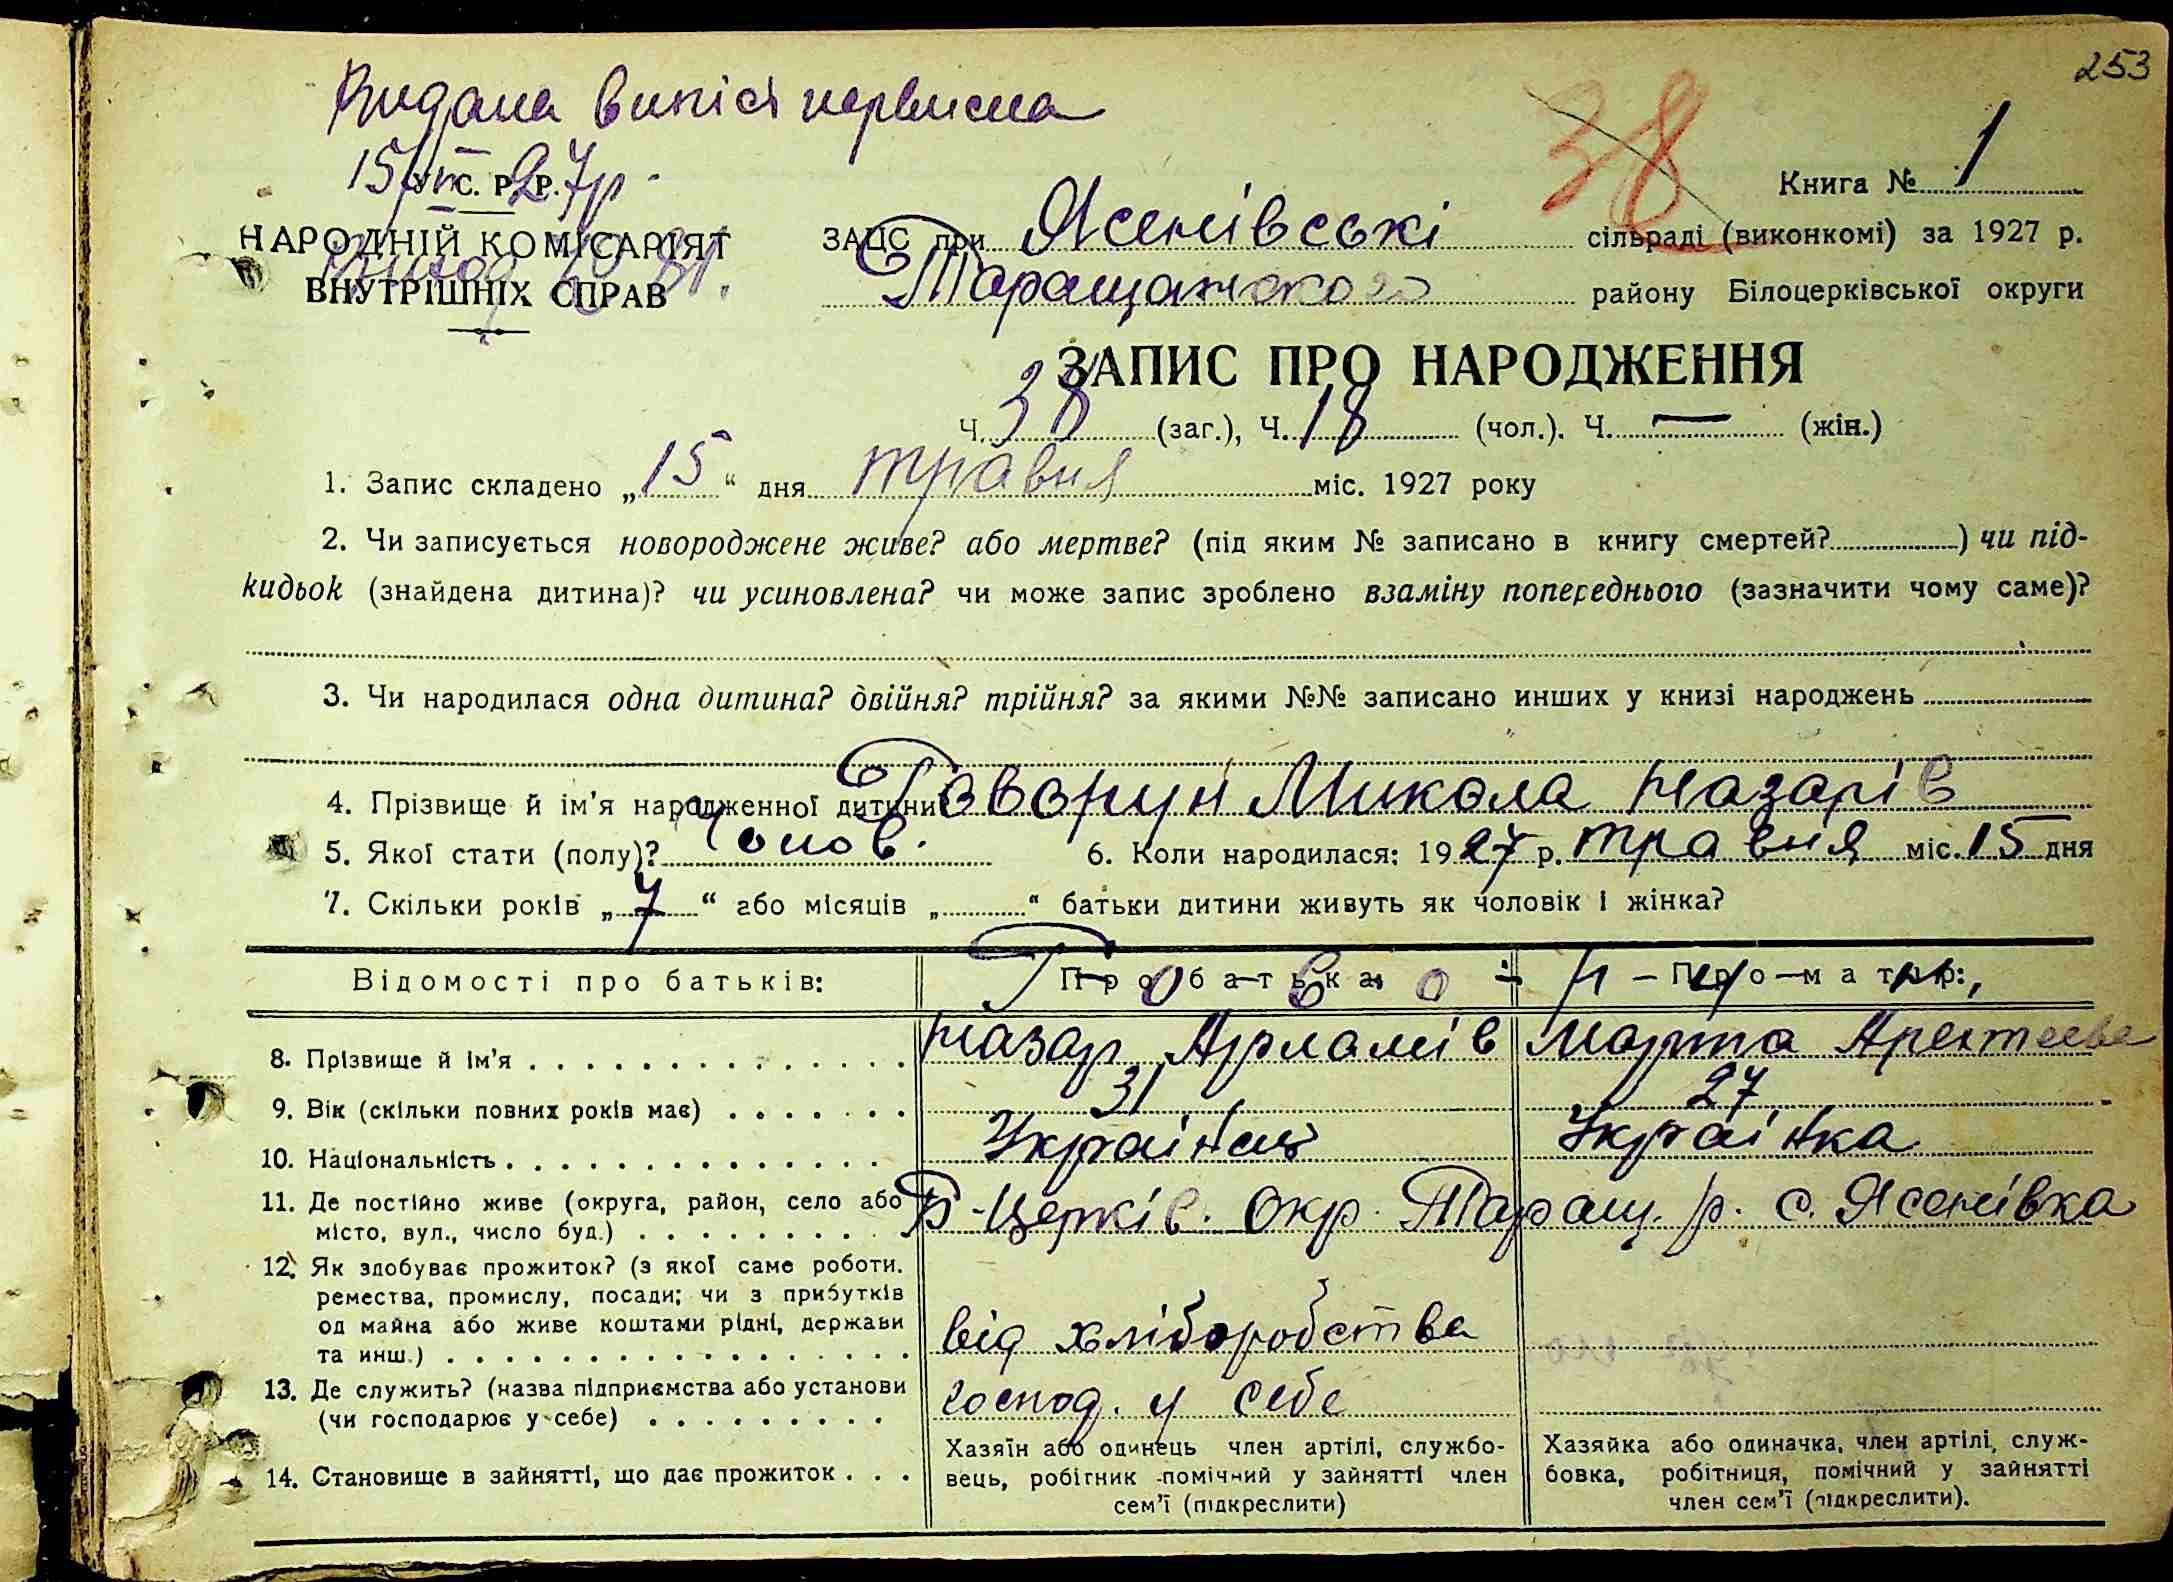 253
Видана випісь первисна
15/VI 27р.
У. С. Р. Р.
38
Книга № 1
НАРОДНІЙ КОМІСАРІЯТ
ВНУТРІШНІХ СПРАВ
ЗАЦС при Ясенівські сільраді (виконкомі) за 1927 р.
Таращанского району Білоцерківської округи
ЗАПИС ПРО НАРОДЖЕННЯ
Ч. 38 (заг.), Ч. 18 (чол.). Ч. — (жін.)
1. Запис складено „15“ дня травня міс. 1927 року
2. Чи записується новороджене живе? або мертве? (під яким № записано в книгу смертей?..........) чи під-
кидьок (знайдена дитина)? чи усиновлена? чи може запис зроблено взаміну попереднього (зазначити чому саме)?
3. Чи народилася одна дитина? двійня? трійня? за якими №№ записано инших у книзі народжень
4. Прізвище й ім’я народженної дитини Говорун Микола Назарів
5. Якої стати (полу)? Чолов. 6. Коли народилася: 1927 р. травня міс. 15 дня
7. Скільки років „7“ або місяців „..........“ батьки дитини живуть як чоловік і жінка?
Відомості про батьків: Про батька: Про матір:
Го-в-о-р-у-н,
8. Прізвище й ім’я Назар Арламів Марта
9. Вік (скільки повних років має) 31 27
10. Національність Українець Українка
11. Де постійно живе (округа, район, село або
місто, вул., число буд.) Б-Церків. Окр. Таращ. р. с. Ясенівка
12. Як здобуває прожиток? (з якої саме роботи.
ремества, промислу, посади; чи з прибутків
од майна або живе коштами рідні, держави
та инш.) від хліборобства
13. Де служить? (назва підприємства або установи
(чи господарює у себе) господ. у себе
14. Становище в зайнятті, що дає прожиток
Хазяїн або одинець член артілі, службо-
вець, робітник помічний у зайнятті член
сем’ї (підкреслити)
Хазяйка або одиначка, член артілі, служ-
бовка, робітниця, помічний у зайнятті
член сем’ї (підкреслити).